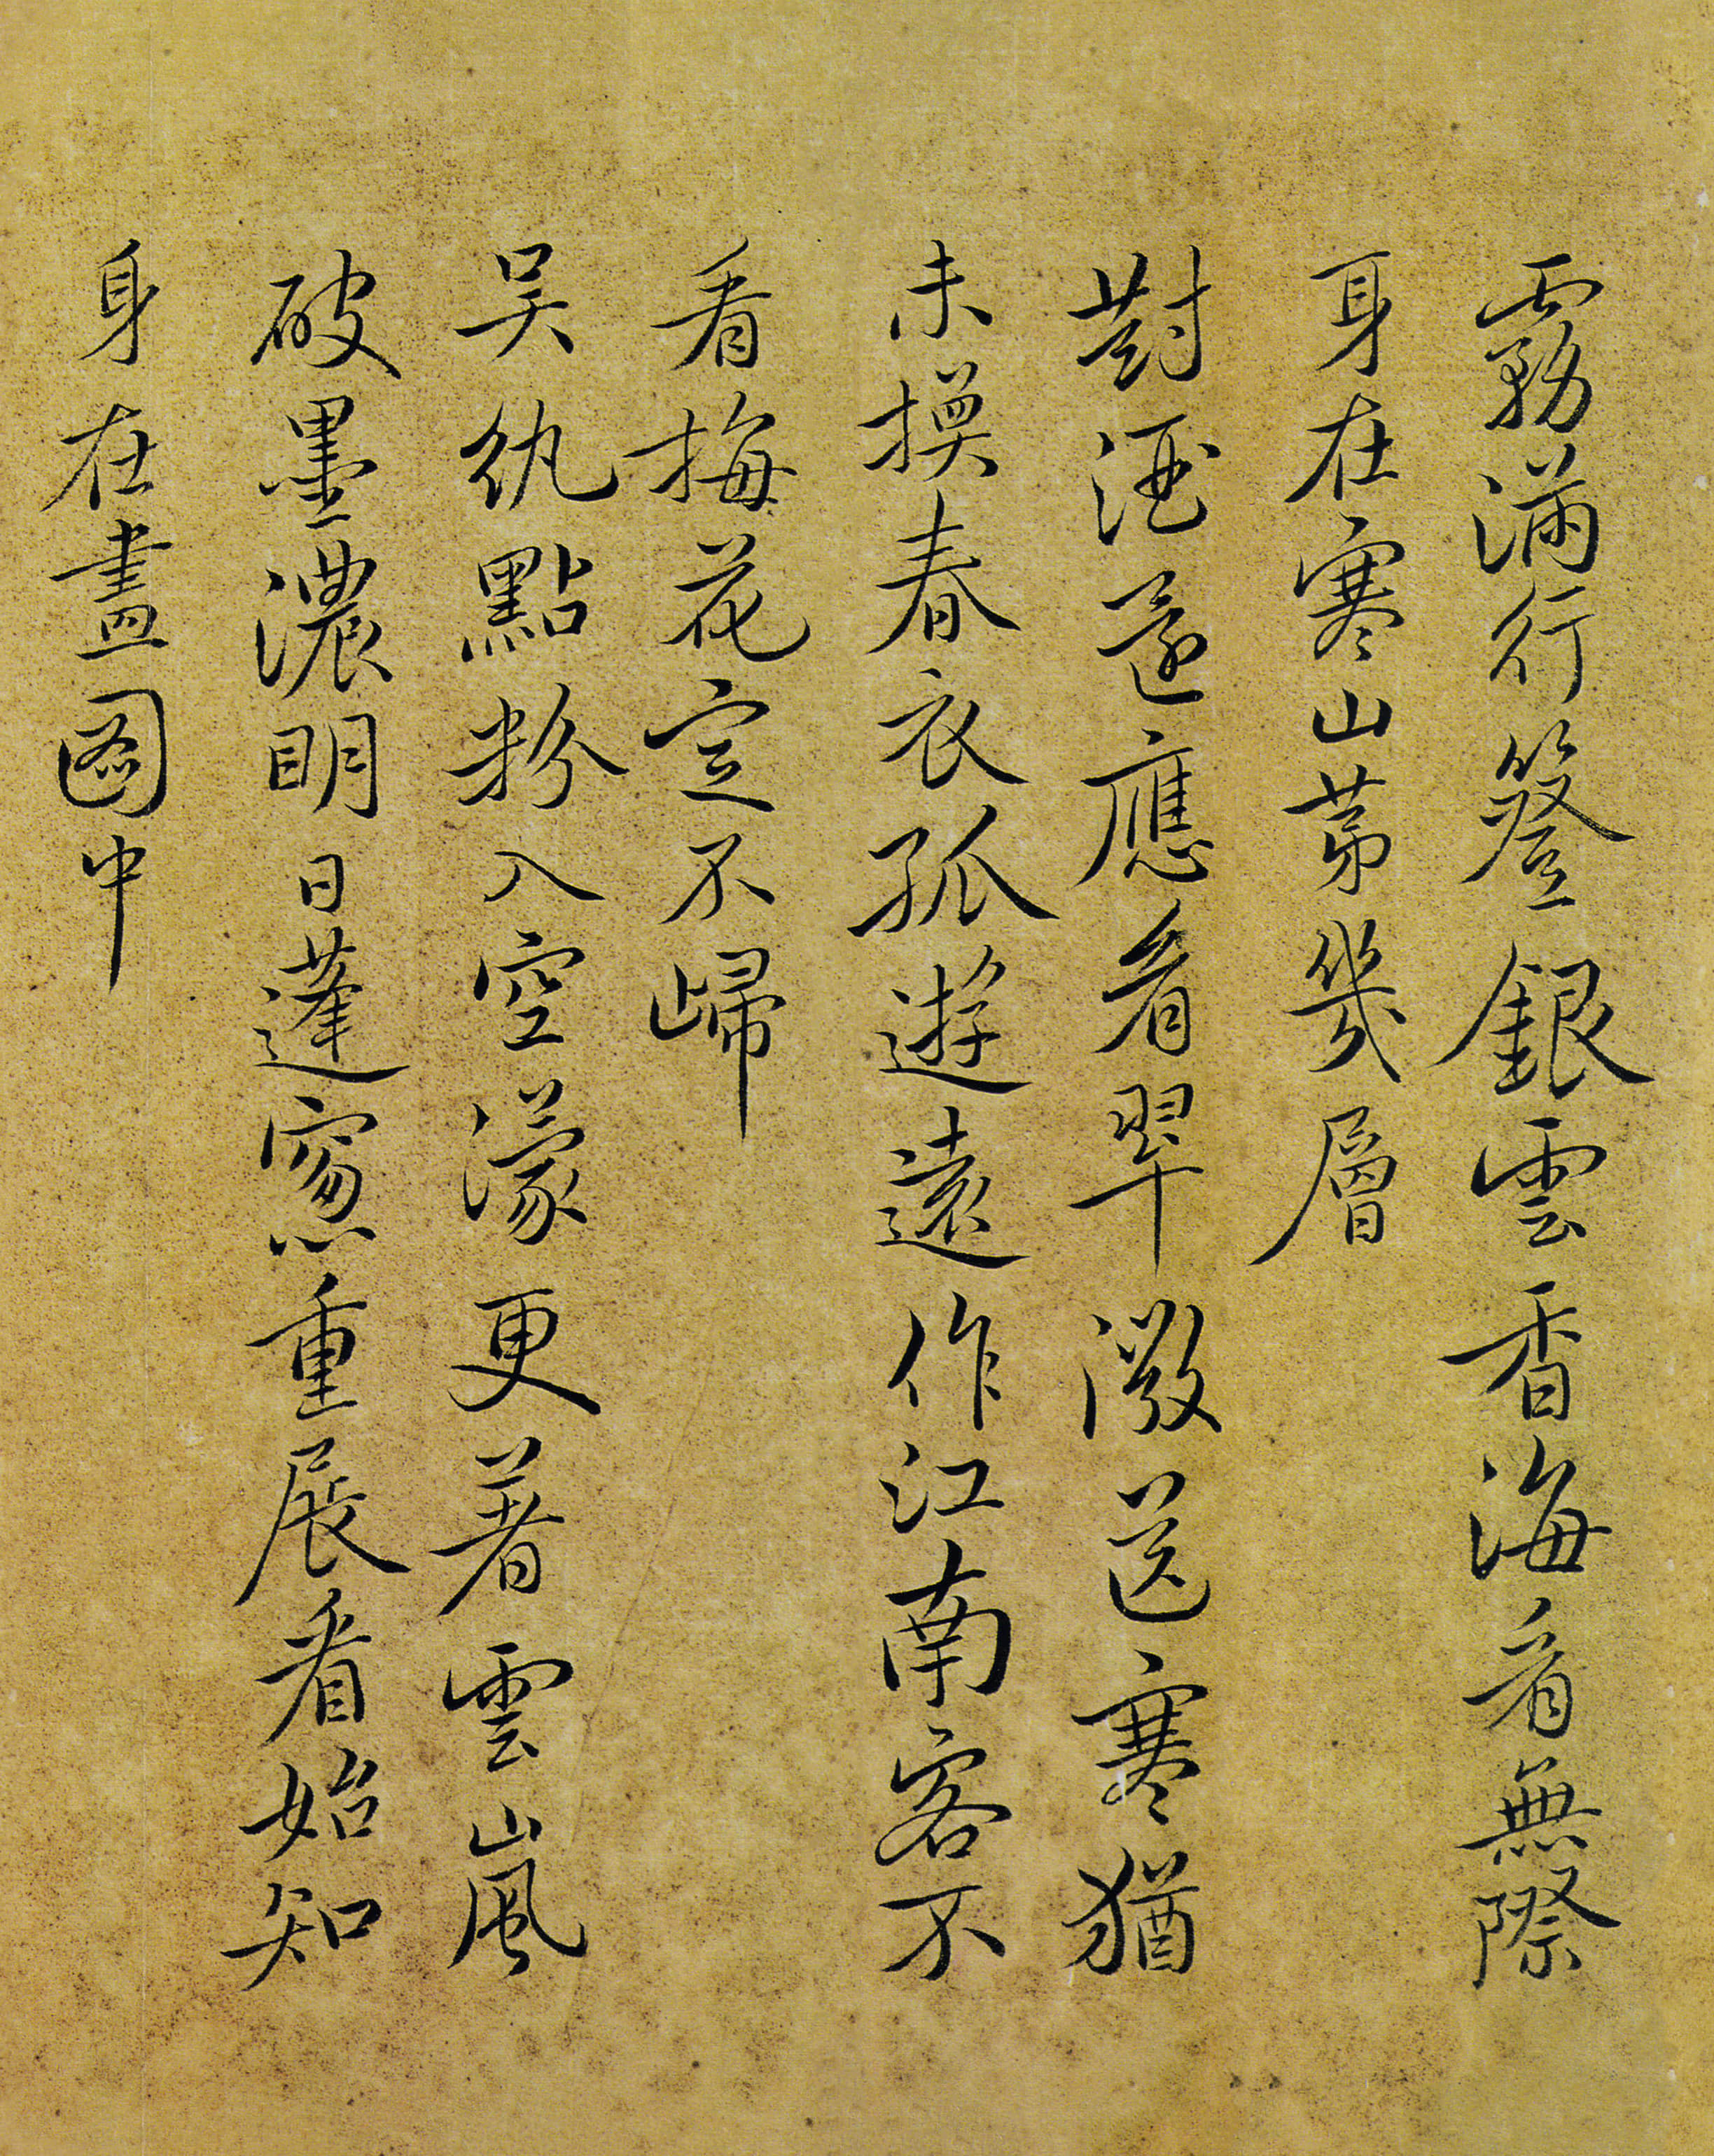 霧滿行簦銀雲香海看無際
身在寒山苐幾層
對酒還應看翠微送寒猶
未換春衣孤遊遠作江南客不
看梅花定不歸
吴紈點粉入空濛更著雲嵐
破墨濃明日蓬窻重展看始知
身在畫圖中